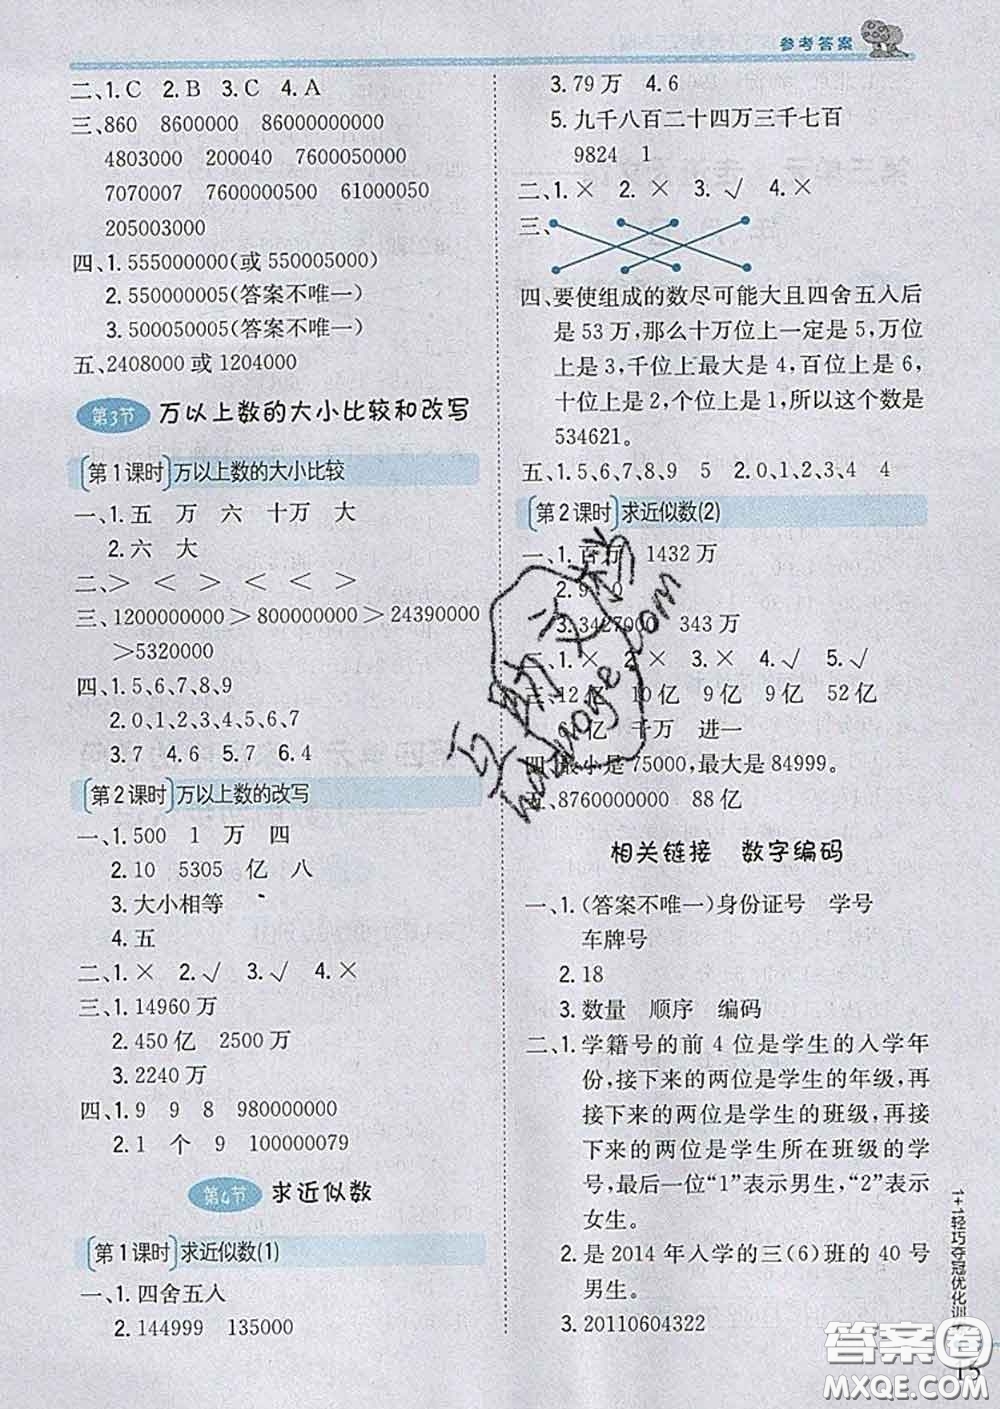 参考答案
二、1.C 2.B 3.C 4.A
三、860 8600000 86000000000
4803000 200040 7600050000
7070007 7600000500 61000050
205003000
四、1.555000000(或 550005000)
2.550000005(答案不唯一)
3.500050005(答案不唯一)
五、2408000 或 1204000
第3节 万以上数的大小比较和改写
第1课时 万以上数的大小比较
一、1.五 万 六 十万 大
2.六 大
二、> < > < < <
三、1200000000>800000000>24390000
>5320000
四、1.5、6、7、8、9
2.0、1、2、3、4、5、6、7
3.7 4.6 5.7 6.4
第2课时 万以上数的改写
一、1.500 1 万 四
2.10 5305 亿 八
3.大小相等
4.五
二、1.× 2.√ 3.√ 4.×
三、1.14960 万
2.450亿 2500万
3.2240万
四、1.9 9 8 980000000
2.1 个 9 100000079
第4节 求近似数
第1课时 求近似数(1)
一、1.四舍五入
2.144999 135000
3.79万 4.6
5.九千八百二十四万三千七百
9824 1
二、1.× 2.× 3.√ 4.×
三、
四、要使组成的数尽可能大且四舍五入后
是53万,那么十万位上一定是5,万位
上是3,千位上最大是4,百位上是6,
十位上是2,个位上是1,所以这个数是
534621。
五、1.5、6、7、8、9 5 2.0、1、2、3、4 4
第2课时 求近似数(2)
一、1.百万 1432万
2.9 0
3.3427000 343万
二、1.× 2.× 3.× 4.√ 5.√
三、12亿 10亿 9亿 9亿 52亿
亿 千万 进一
四、最小是75000,最大是84999。
五、8760000000 88亿
相关链接 数字编码
一、1.(答案不唯一)身份证号 学号
车牌号
2.18
3.数量 顺序 编码
二、1.学籍号的前4位是学生的入学年
份,接下来的两位是学生的年级,再
接下来的两位是学生的班级,再接
下来的两位是学生所在班级的学
号,最后一位“1”表示男生,“2”表示
女生。
2.是2014年入学的三(6)班的40号
男生。
3.20110604322
1+1轻巧夺冠优化训
15
互助文档
huzuoye.com
答案圈
MXQE.COM